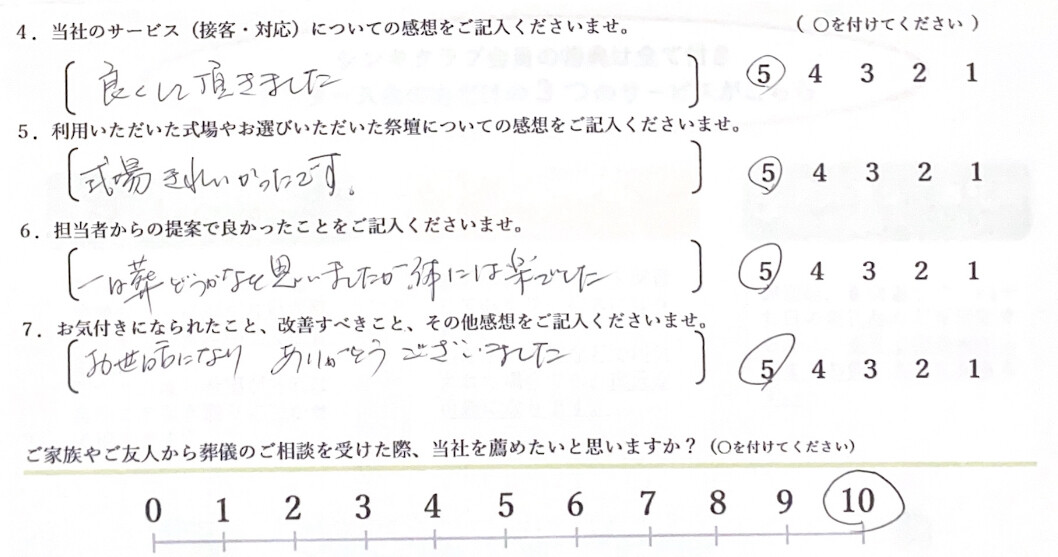 4．当社のサービス（接客・対応）についての感想をご記入くださいませ。 （ ○を付けてください ）
良くして頂きました 5 4 3 2 1
5．利用いただいた式場やお選びいただいた祭壇についての感想をご記入くださいませ。
式場きれいかったです。 5 4 3 2 1
6．担当者からの提案で良かったことをご記入くださいませ。
一日葬どうかなと思いましたが、体には楽でした 5 4 3 2 1
7．お気付きになられたこと、改善すべきこと、その他感想をご記入くださいませ。
お世話になり ありがとうございました 5 4 3 2 1
ご家族やご友人から葬儀のご相談を受けた際、当社を薦めたいと思いますか？（○を付けてください）
0 1 2 3 4 5 6 7 8 9 10